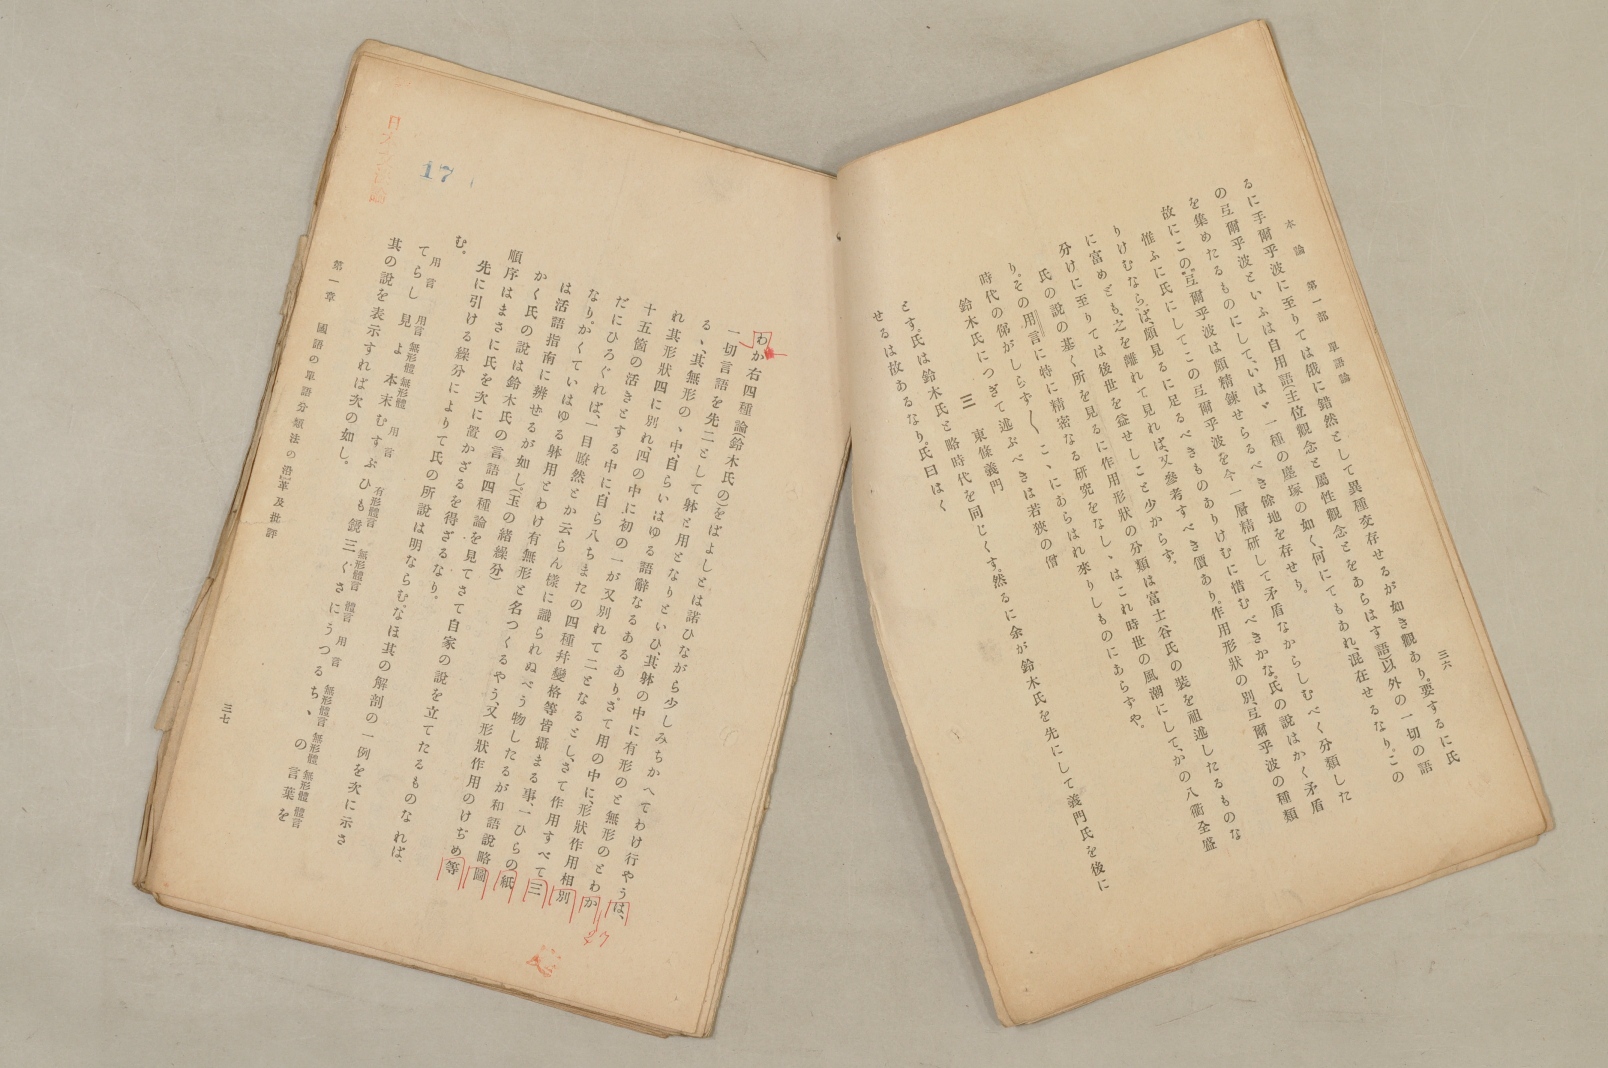 本論　第一部　單語論
三六
るに手爾乎波に至りては俄に錯然として異種交存せるが如き觀あり。要するに氏
の弖爾乎波といふは自用語(主位觀念と屬性觀念とをあらはす語)以外の一切の語
を集めたるものにして、いはゞ一種の塵塚の如く、何にてもあれ、混在せるなり。この
故にこの弖爾乎波は頗精錬せらるべき餘地を存せり。
惟ふに氏にしてこの弖爾乎波を今一層精研して矛盾なからしむべく分類した
りけむならば、頗見るに足るべきものありけむに惜むべきかな。氏の說はかく矛盾
に富めども、之を離れて見れば、又參考すべき價あり。作用形狀の別、弖爾乎波の種類
分けに至りては後世を益せしこと少からず。
氏の說の基く所を見るに作用形狀の分類は富士谷氏の裝を祖述したるものな
り。その用言に特に精密なる研究をなしゝはこれ時世の風潮にして、かの八衢全盛
時代の俤がしらず〱こゝにあらはれ來りしものにあらずや。
三　東條義門
鈴木氏につぎて述ぶべきは若狹の僧
とす。氏は鈴木氏と略時代を同じくす。然るに余が鈴木氏を先にして義門氏を後に
せるは故あるなり。氏曰はく
わが右四種論(鈴木氏の)をばよしとは諾ひながら少しみちかへてわけ行やうは、
一切言語を先二として躰と用となりといひ、其躰の中に有形のと無形のとわか
る、其無形のゝ中、自らいはゆる語辭なるあるあり。さて用の中に、形狀作用相別
れ其形狀四に別れ、四の中に初の一が又別れて二となるとし、さて作用すべて三
十五箇の活きとする中に、自ら八ちまたの四種幷變格等皆攝まる事、一ひらの紙
だにひろぐれば、一目瞭然とか云らん樣に識られぬべう物したるが和語說略圖
なり。かくていはゆる躰用とわけ有無形と名つくるやう、又形狀作用のけぢめ等
は活語指南に辨せるが如し(玉の緒繰分)
かく氏の說は鈴木氏の言語四種論を見てさて自家の說を立てたるものなれば、
順序はまさに氏を次に置かざるを得ざるなり。
先に引ける繰分によりて氏の所說は明ならむ。なほ其の解剖の一例を次に示さ
む。
用言　用言　無形體　無形體　用言　有形體言　無形體言　體言　用言　無形體言　無形體　無形體　體言
てらし見よ本末むすぶひも鏡三くさにうつるちゝの言葉を
其の說を表示すれば次の如し。
第一章　國語の單語分類法の沿革及批評
三七
17